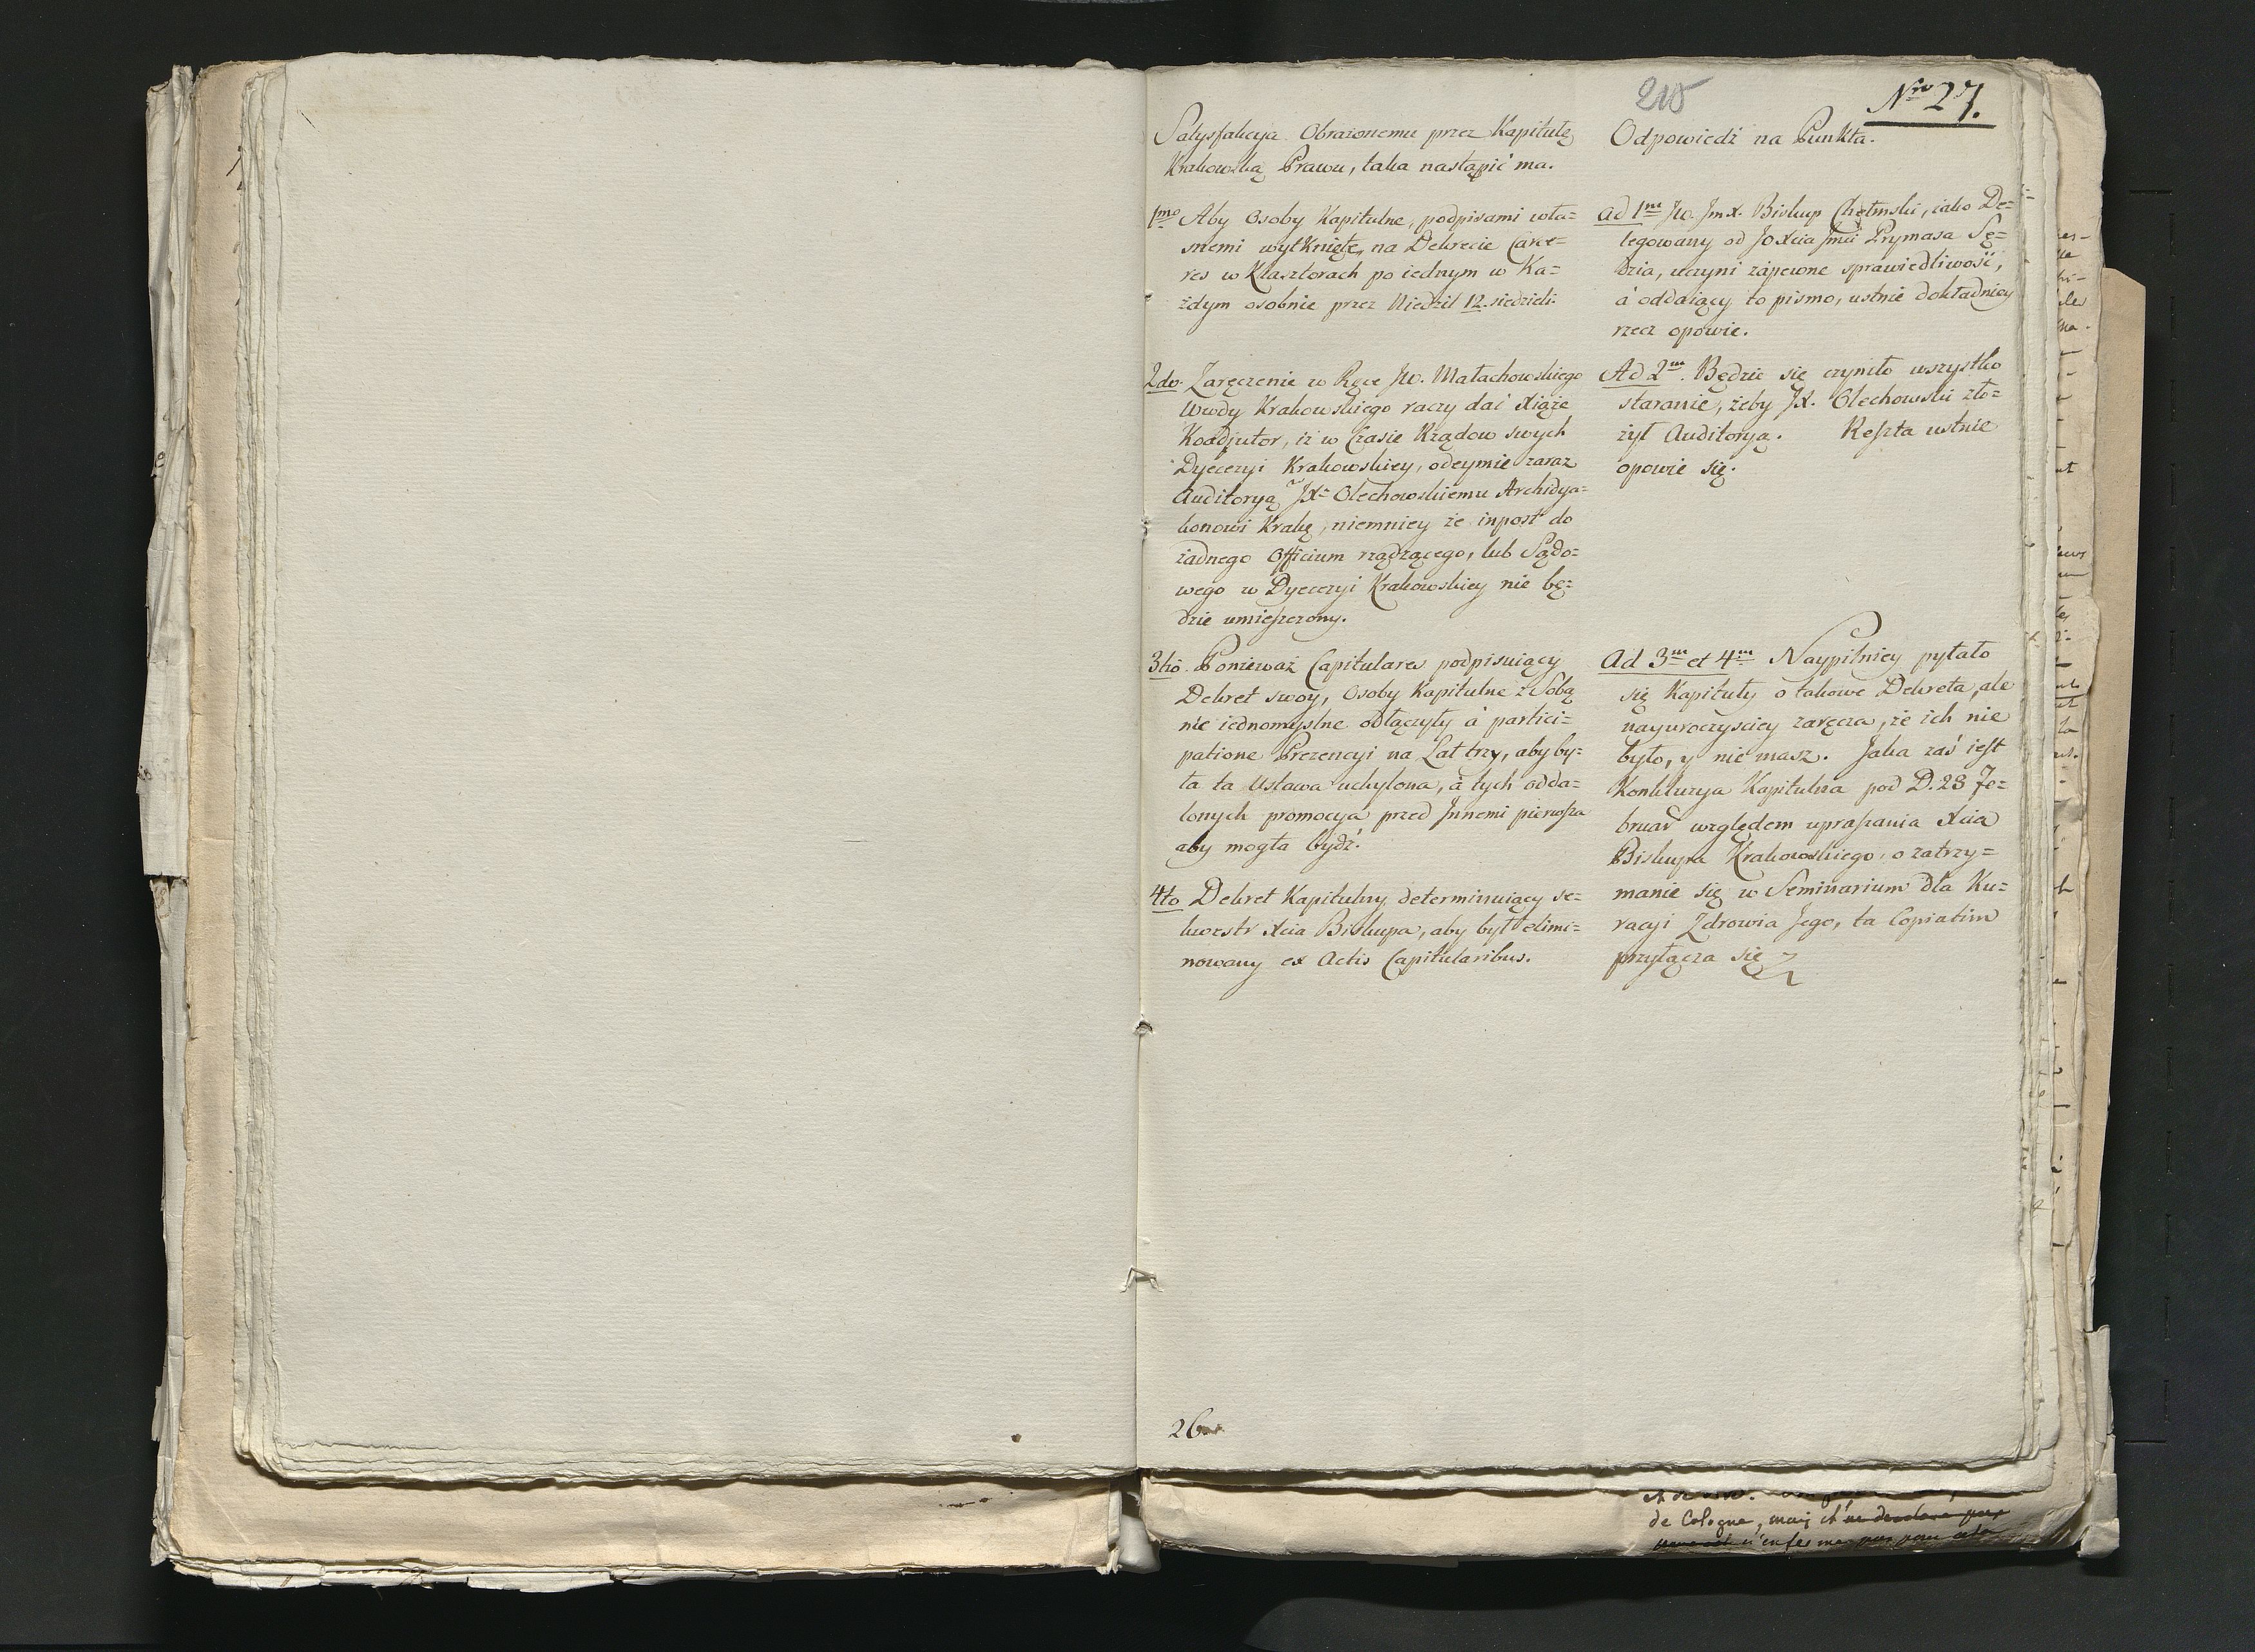 210
Nro 27.
Satysfakcya Obrażonemu przez Kapitułę
Krakowską Prawu, taka nastąpić ma.
1mo Aby Osoby Kapitulne, podpisami wła=
snemi wytknięte, na Dekrecie Carce=
res w Klasztorach po iednym w Ka=
żdym osobnie przez Niedziel 12. siedzieli.
2do. Zaręczenie w Ręce Jw. Małachowskiego
Wwdy Krakowskiego raczy dać Xiąże
Koadjutor, iż w Czasie Rządow swych
Dyecezyi Krakowskiey, odeymie zaraz
Auditoryą JX= Olechowskiemu Archidya=
konowi Krakę, niemniey że inpost do
żadnego Officium rządzącego, lub Sądo=
wego w Dyecezyi Krakowskiey nie bę=
dzie umieszczony.
3tio. Ponieważ Capitulares podpisuiący
Dekret swoy, Osoby Kapitulne z Sobą
nie iednomyslne odłączyły à partici=
patione Prezencyi na Lat trzy, aby by=
ła ta Ustawa uchylona, à tych odda=
lonych promocya przed Innemi pierwsza
aby mogła bydź.
4to Dekret Kapitulny determinuiący se=
kwestr Xcia Biskupa, aby był elimi=
nowany ex Actis Capitularibus.
26
Odpowiedź na Punkta.
ad 1m Jw. Jmx. Biskup Chełmski, iako De=
legowany od JOXcia Jmci Prymasa Sę=
dzia, uczyni zapewne sprawiedliwość,
à oddaiący to pismo, ustnie dokładniey
rzecz opowie.
Ad 2m. Będzie się czyniło wszystko
staranie, żeby JX. Olechowski zło=
żył Auditoryą. Reszta ustnie
opowie się.
Ad 3m et 4m Naypilniey pytało
się Kapituły o takowe Dekreta, ale
nayuroczysciey zaręcza, że ich nie
było, y nie masz. Jaka zaś iest
Konkluzya Kapitulna pod D. 23 Fe=
bruar względem upraszania Xcia
Biskupa Krakowskiego, o zatrzy=
manie się w Seminarium dla Ku=
racyi Zdrowia Jego, ta Copiatim
przyłącza się
de Cologne, mais